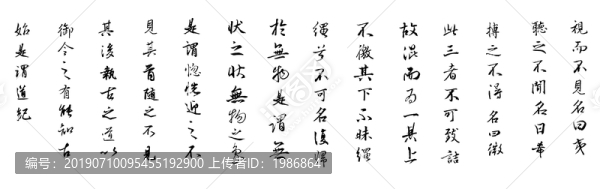 視而不見名曰夷
聽之不聞名曰希
搏之不得名曰微
此三者不可致詰
故混而為一其上
不徼其下不昧繩
繩兮不可名復歸
於無物是謂無
狀之狀無物之象
是謂惚恍迎之不
見其首隨之不見
其後執古之道以
御今之有能知古
始是謂道紀
编号：20190710095455192900 上传者ID：19868641